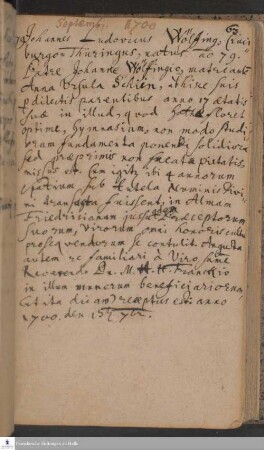 Septembr. 1700
63
Johannes Ludovicus Wölfing,
burgo Thuringus, natus ao 79.
Patre Johanne Wölfingio, matre autem
Anna Ursula
dilectis parentibus anno 17 ætatis
suæ in illud, quod Gothæ floret
optime, Gymnasium, non modo studi-
orum fundamenta ponendi solidiora
sed præprimis non fucatæ pietatis
missus est. Cum igitur ibi 4 annorum
spatium sub tutela Numinis Divi-
ni transacta fuissent, in Almam
Fridericianam jussu Præceptorum
suorum, Virorum omni honoris cultu
prosequendorum se contulit
autem re familiari à Viro summe
Reverendo Dn. M. A. H. Franckio
in illum numerum beneficiariorum,
(ut ita dicam) receptus est anno
1700. den 15 7br.